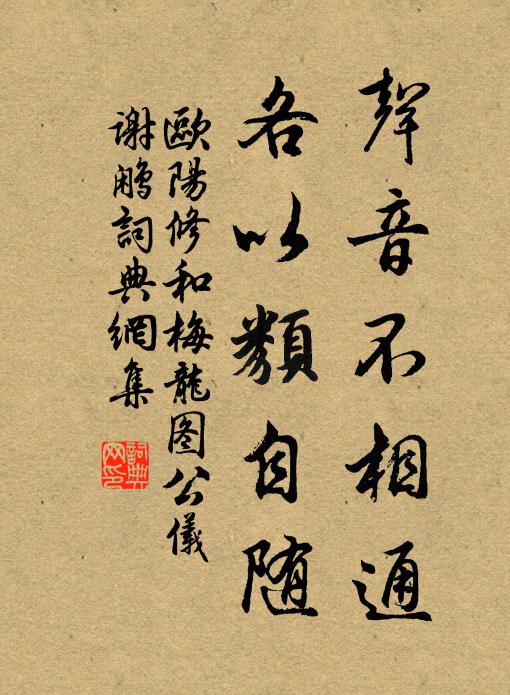 聲音不相通
各以類自随
歐陽修和梅龍图公儀
謝鵬詞典網集
詞典
网印